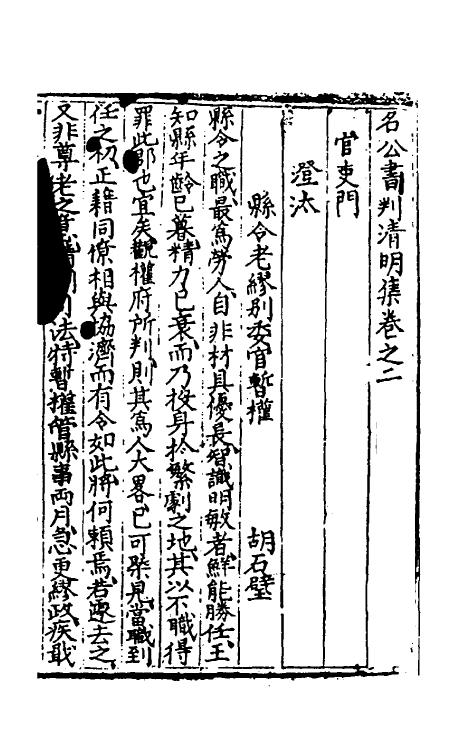 名公書判清明集卷之二
官吏門
澄汰
縣令老繆別委官暫權 胡石壁
縣令之職最為勞人自非材具優長智識明敏者鮮能勝任王
知縣年齡已暮精力已衰而乃投身於繁劇之地其以不職得
罪此郡也宜矣觀權府所判則其為人大畧已可槩見當職到
任之初正藉同僚相與協濟而有令如此將何賴焉若遽去之
又非尊老之意法特暫權管縣事兩月急更繆政疾戢